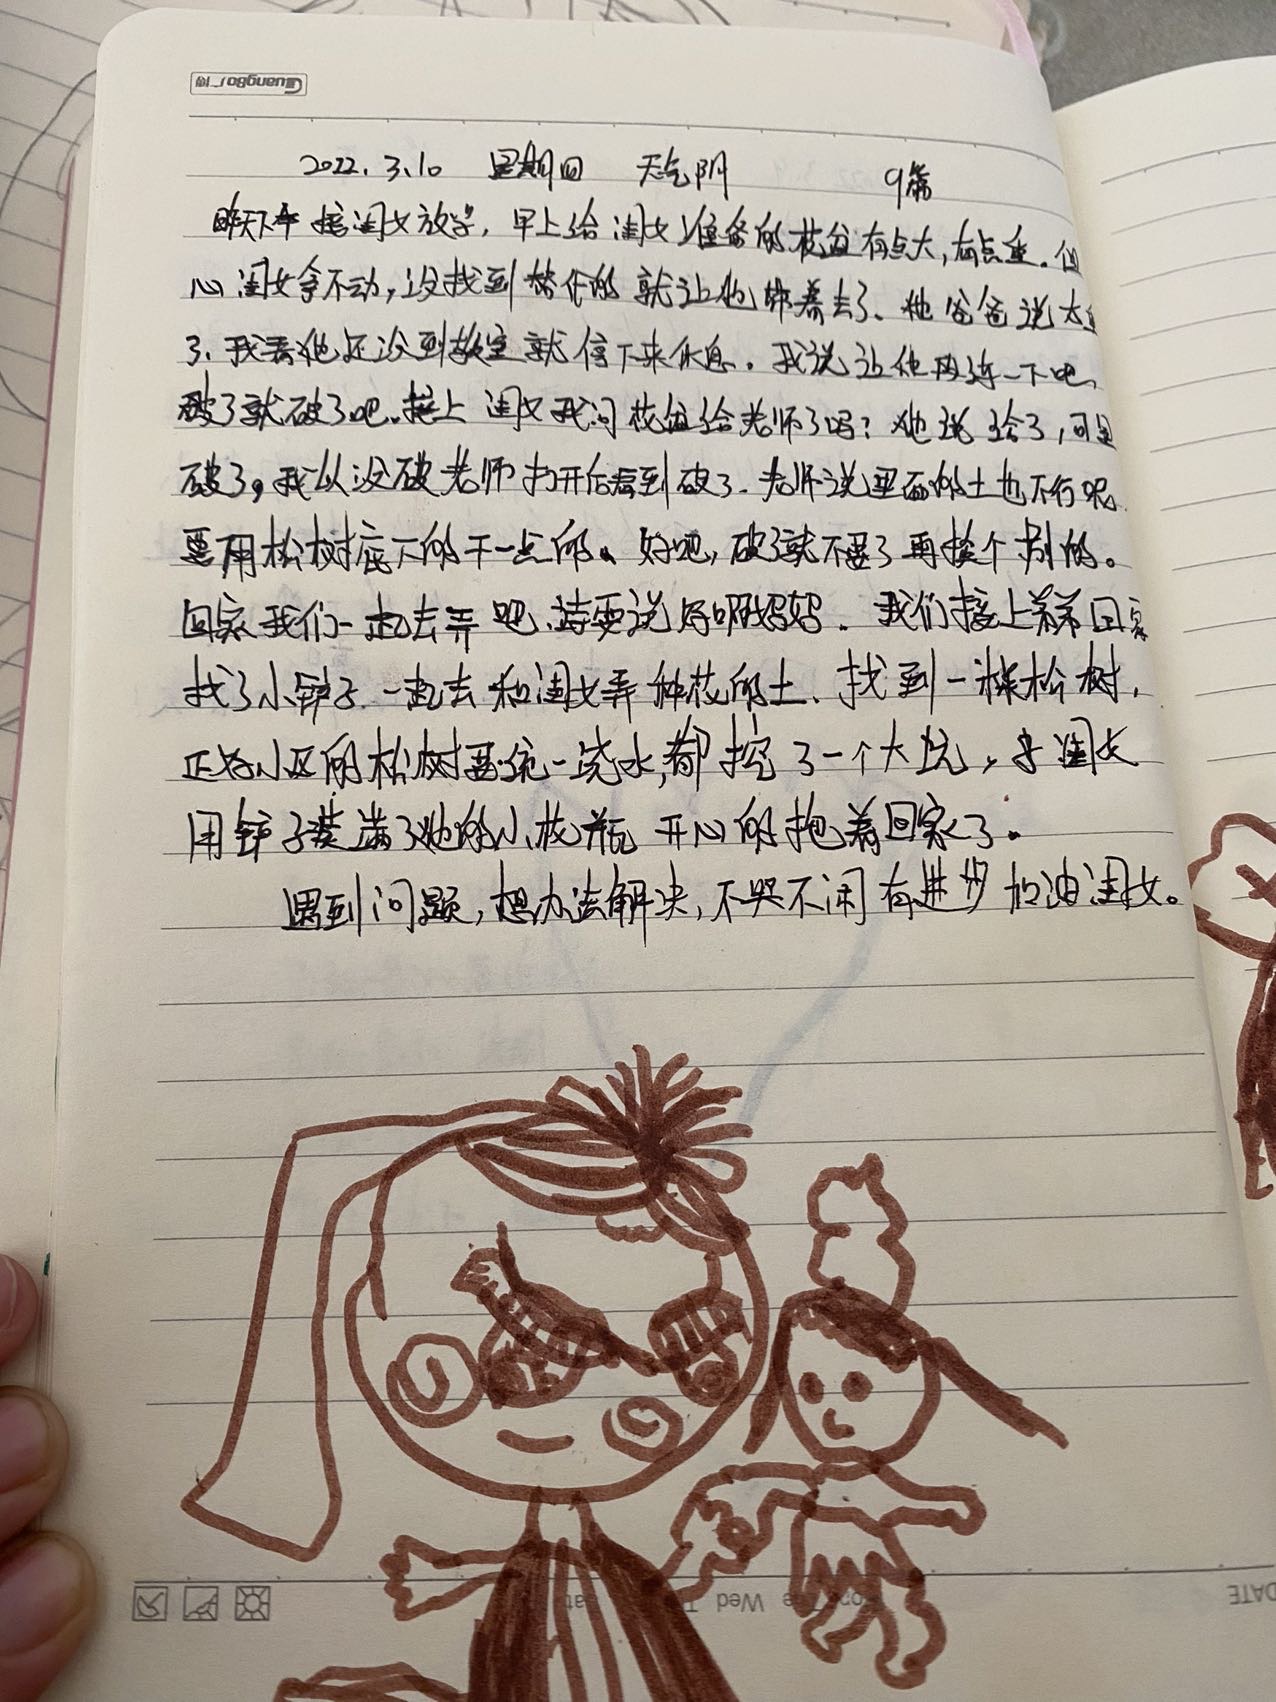 GuangBo 广博
2022.3.10 星期四 天气阴 9篇
昨天下午接闺女放学,早上给闺女准备的花盆有点大,有点重。但
心闺女拿不动,没找到替代的就让她带着去了、她爸爸说太重
了、我看她还没到教室就停下来休息。我说让他再连一下吧、
破了就破了吧、接上闺女我问花盆给老师了吗?她说给了,可是
破了。我以没破老师打开后看到破了、老师说里面的土也不行呢
要用松树底下的干一点的、好吧,破了就不要了再换个别的。
回家我们一起去弄吧、诗雯说好啊妈妈、我们接上弟弟回家
找了小铲子、一起去和闺女弄种花的土、找到一棵松树,
正好小区的松树要统一浇水,都挖了一个大坑,于闺女
用铲子装满了她的小花瓶 开心的抱着回家了。
遇到问题,想办法解决,不哭不闹有进步 加油闺女。
Tue Wed
DATE